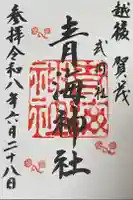 越後 賀茂
式内社
青海神社
参拝令和八年六月二十八日